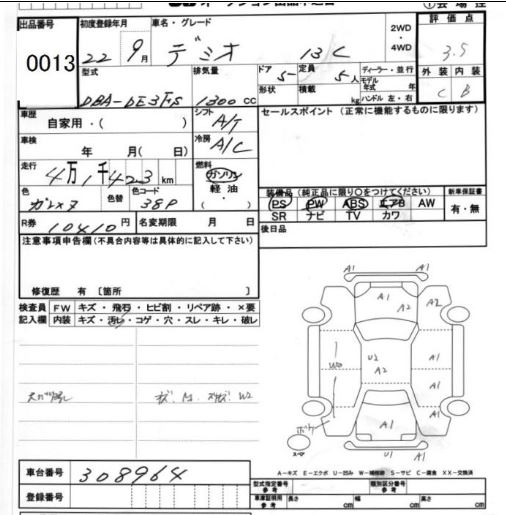 出品番号 初度登録年月 車名・グレード 2WD ・ 4WD 評価点
0013 22 9月 デミオ 13C 3.5
型式 排気量 ドア 定員 ディーラー・並行 外装 内装
DBA-DE3FS 1300cc 5 5人 モデル年式 年 C B
形状 積載 kg ハンドル 左・右
車歴 自家用・( ) シフト A/T セールスポイント (正常に機能するものに限ります)
車検 年 月(日) 冷房 A/C
走行 4万1千423km 燃料 ガソリン
軽油・( )
色 色替 色コード 38P
装備品 (純正品に限り○をつけてください) 新車保証書
PS PW ABS エアB AW 有・無
SR ナビ TV カワ
R券 10410円 名変期限 月 日 後日品
注意事項申告欄(不具合内容等は具体的に記入して下さい)
修復歴 有 〔箇所 〕
検査員 FW キズ・飛石・ヒビ割・リペア跡・×要
記入欄 内装 キズ・汚れ・コゲ・穴・スレ・キレ・破レ
A1 A1
A1 A2 A2
W2
U2 A2 A1
A1
A1
A1 U1 A1
A-キズ E-エクボ U-凹み W-補修跡 S-サビ C-腐食 XX-交換済
車台番号 308964
登録番号
型式指定番号 参考 類別区分番号 参考
車庫証明用 参考 長さ cm 幅 cm 高さ cm